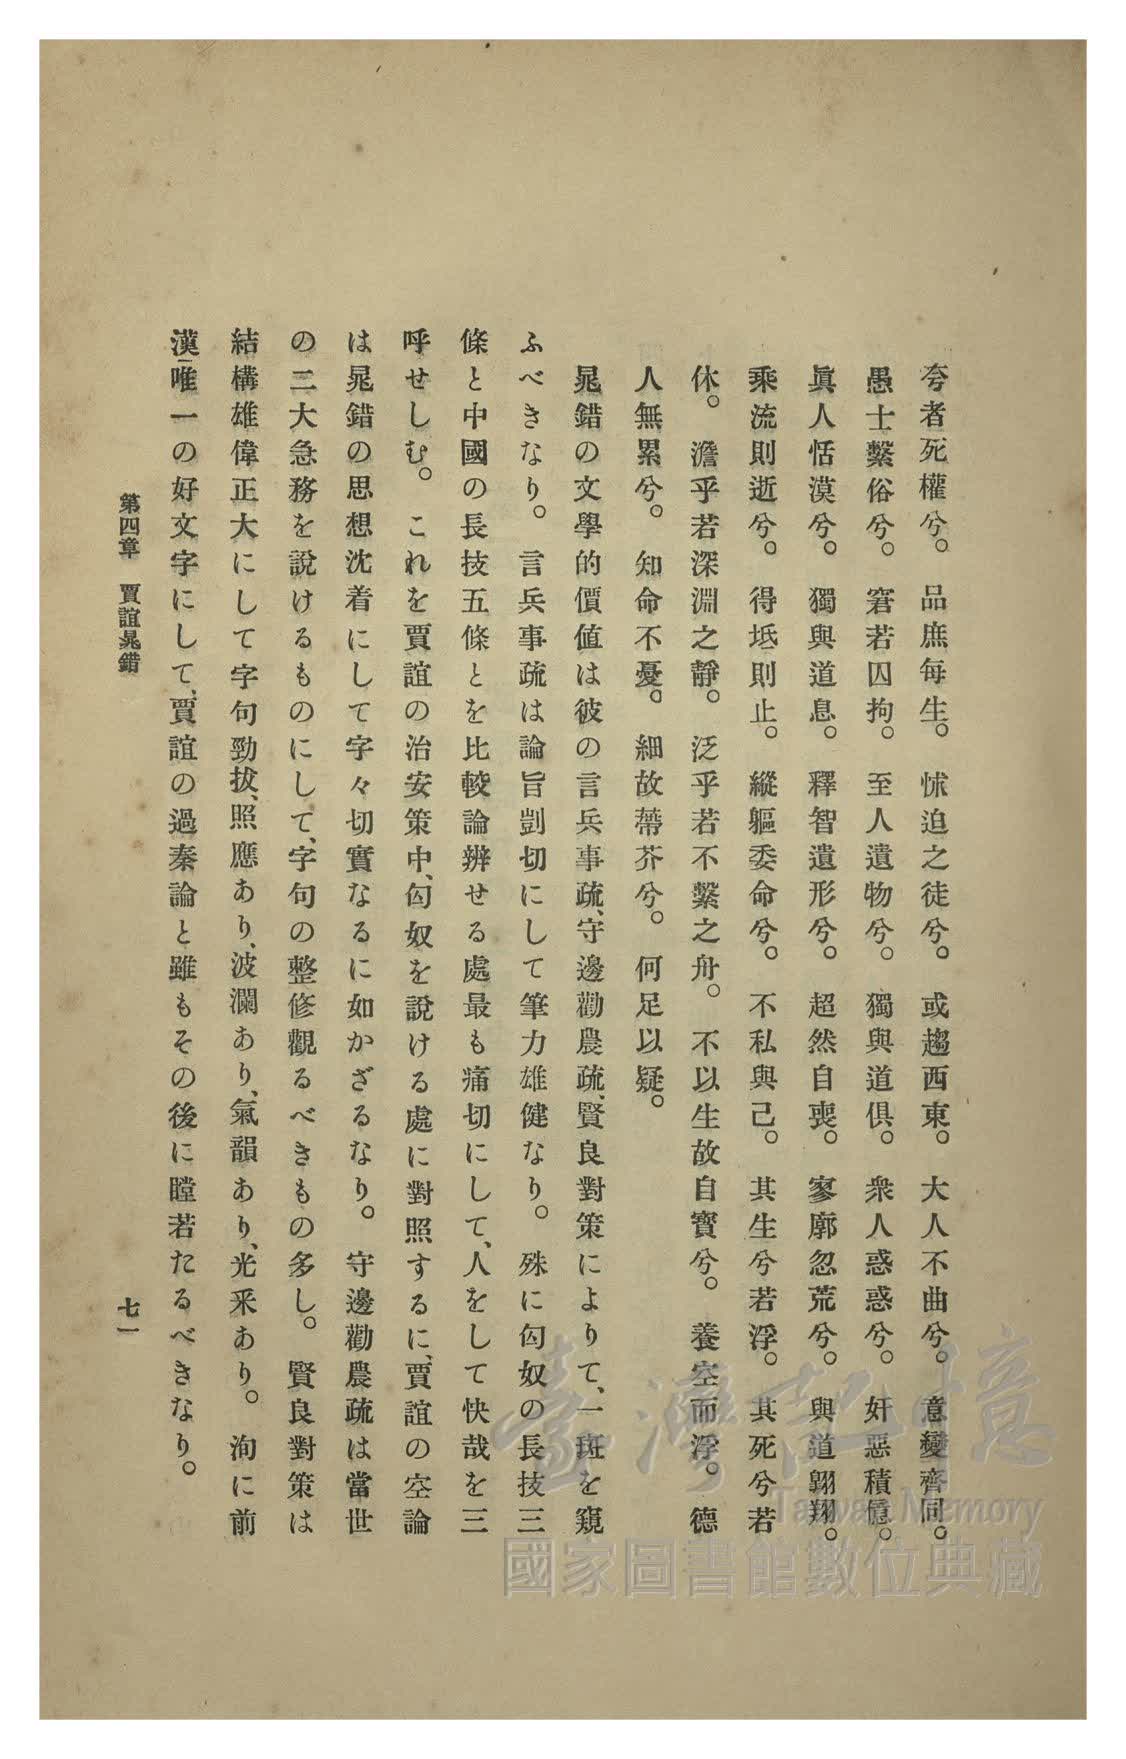 夸者死權兮。品庶每生。怵迫之徒兮。或趨西東。大人不曲兮。意變齊同。
愚士繫俗兮。窘若囚拘。至人遺物兮。獨與道俱。衆人惑惑兮。好惡積億。
眞人恬漠兮。獨與道息。釋智遺形兮。超然自喪。寥廓忽荒兮。與道翺翔。
乘流則逝兮。得坻則止。縱軀委命兮。不私與己。其生兮若浮。其死兮若
休。澹乎若深淵之靜。泛乎若不繫之舟。不以生故自寶兮。養空而浮。德
人無累兮。知命不憂。細故蔕芥兮。何足以疑。
晁錯の文學的價値は彼の言兵事疏、守邊勸農疏、賢良對策によりて、一斑を窺
ふべきなり。言兵事疏は論旨剴切にして筆力雄健なり。殊に匈奴の長技三
條と中國の長技五條とを比較論辨せる處最も痛切にして、人をして快哉を三
呼せしむ。これを賈誼の治安策中、匈奴を說ける處に對照するに、賈誼の空論
は晁錯の思想沈着にして字々切實なるに如かざるなり。守邊勸農疏は當世
の二大急務を說けるものにして、字句の整修觀るべきもの多し。賢良對策は
結構雄偉正大にして字句勁拔、照應あり、波瀾あり、氣韻あり、光釆あり。洵に前
漢唯一の好文字にして、賈誼の過秦論と雖もその後に瞠若たるべきなり。
第四章 賈誼晁錯
七一
臺灣記憶
Taiwan Memory
國家圖書館數位典藏